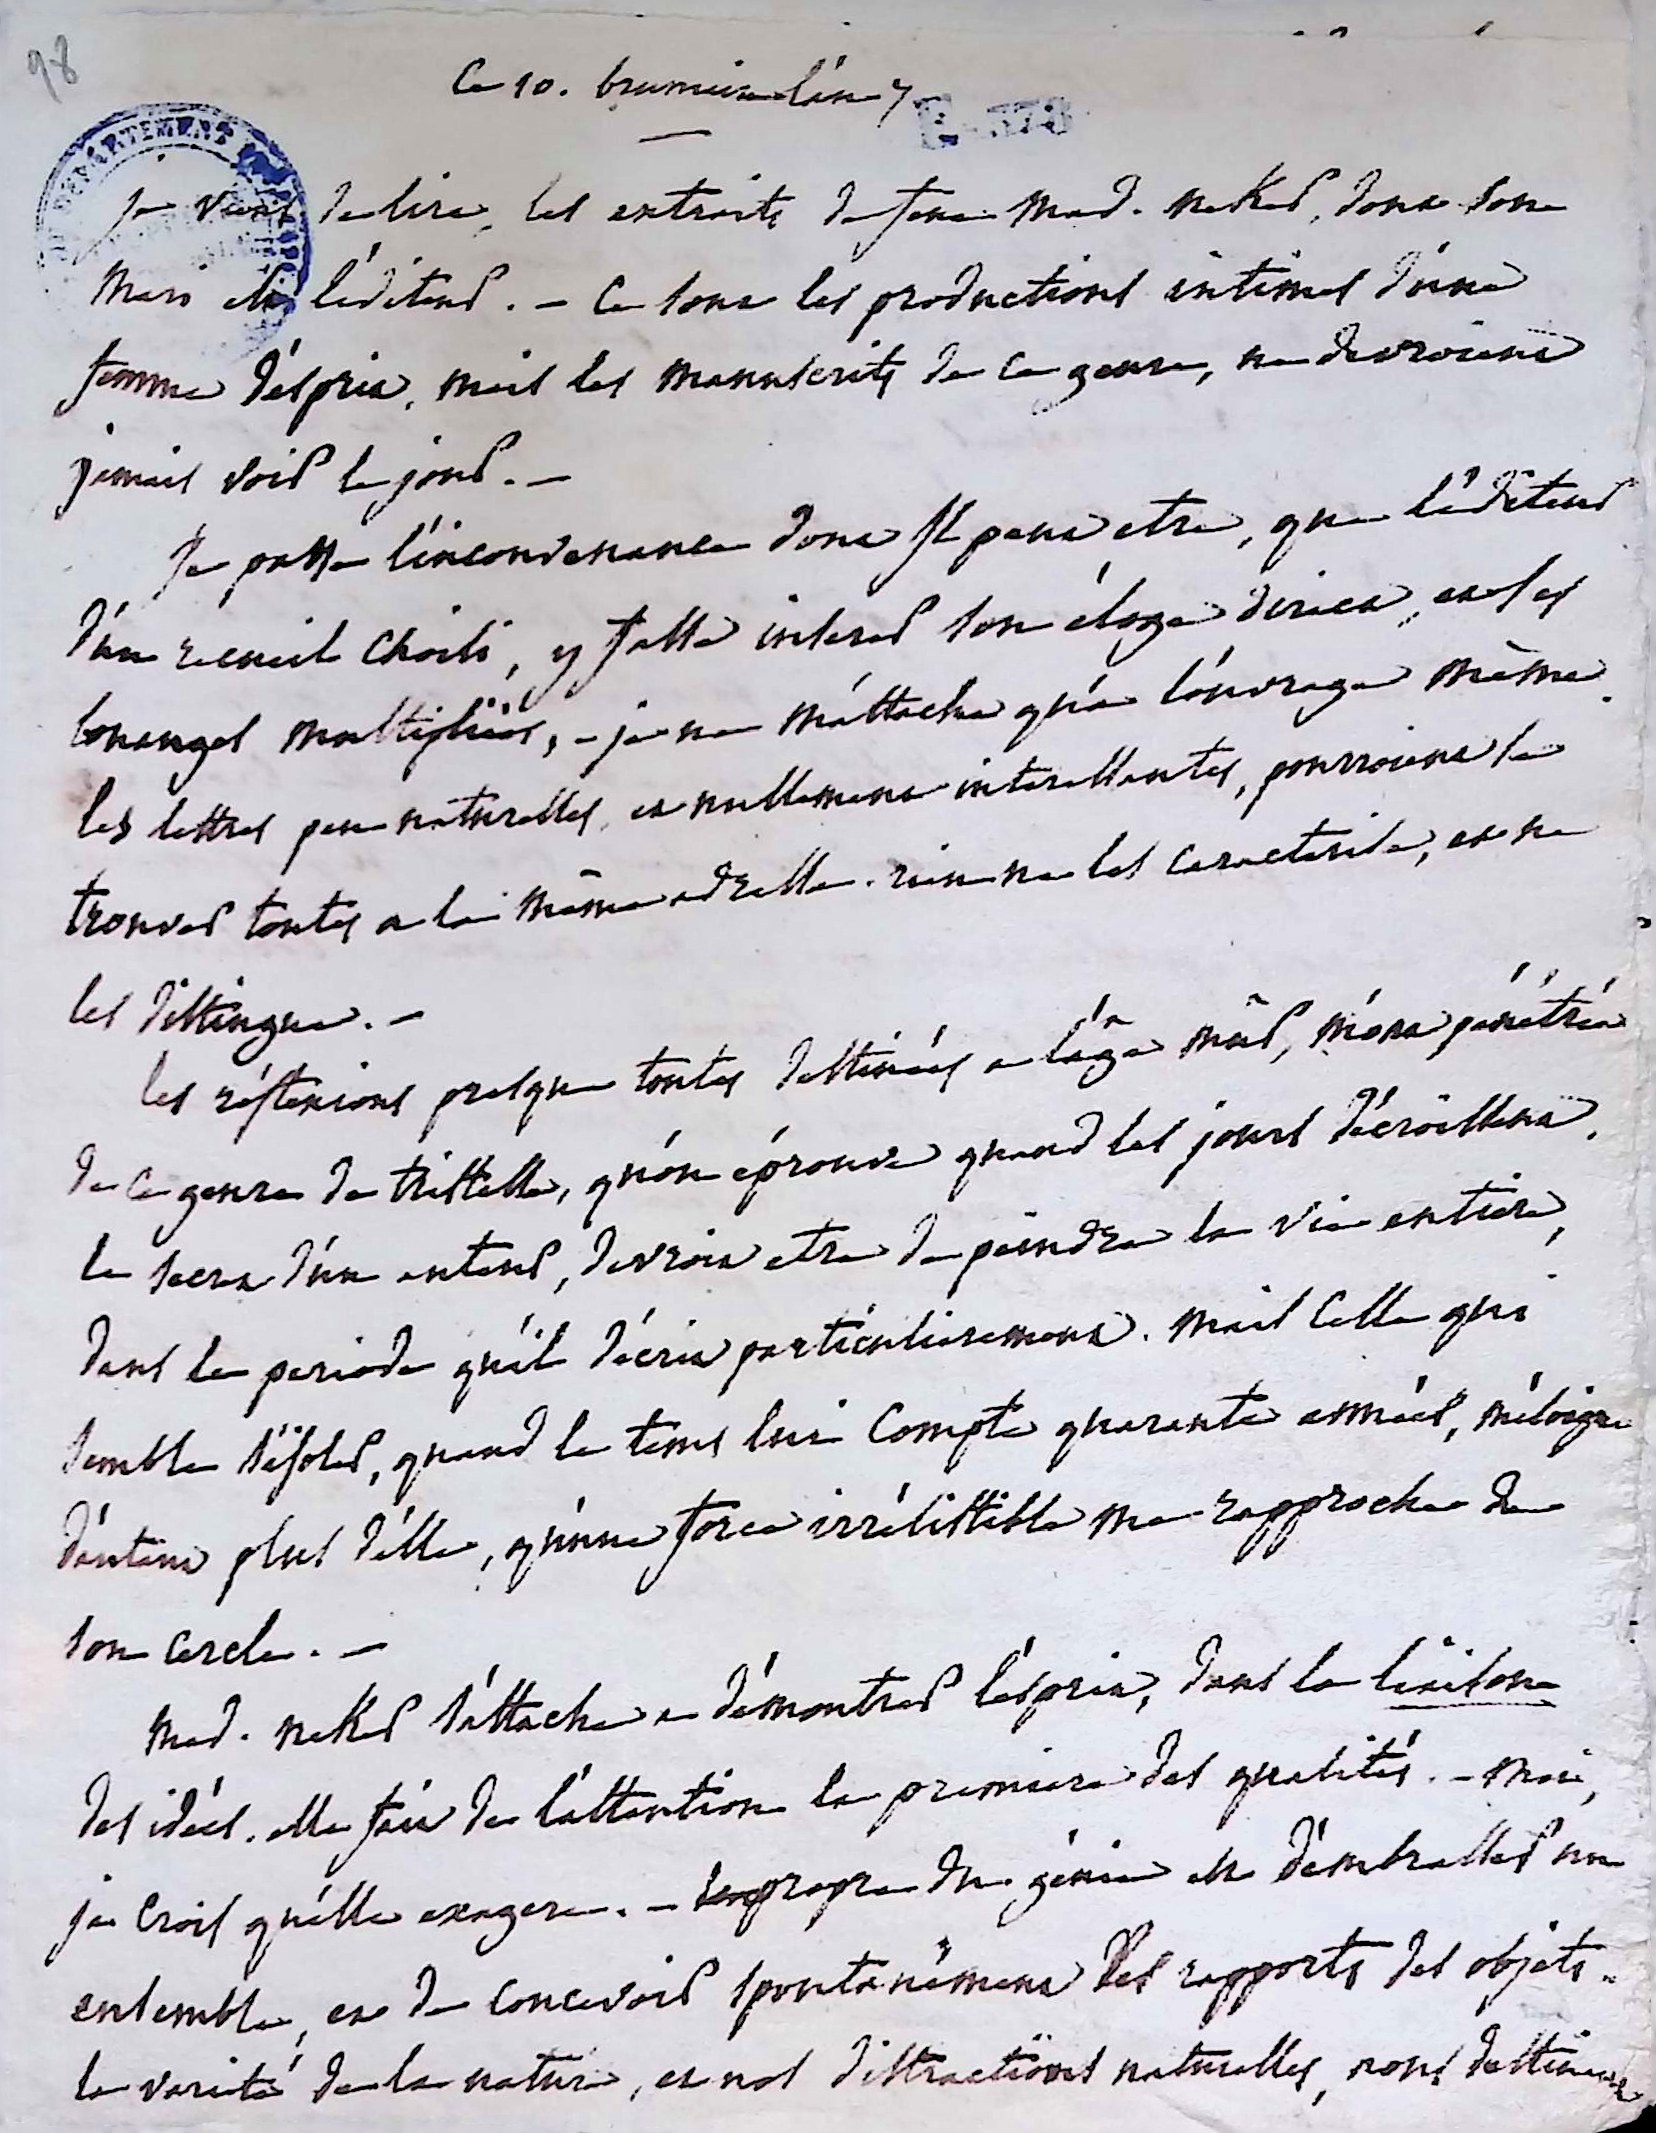 98
Ce 10. brumaire l'an 7
E. 378
DU DÉPARTEMENT
je viens de lire, les extraits de feue mad. neker, dont son
mari est l'éditeur. - Ce sont les productions intimes d'une
femme d'ésprit, mais les manuscrits de ce genre, ne devroient
jamais voir le jour. -
Je passe l'inconvenance dont Il peut etre, que l'éditeur
d'un recueil choisi, y fasse inserer son éloge direct, et ses
louanges multipliées, - je ne m'attache qu'a l'ouvrage même.
les lettres peu naturelles, et nullement interessantes, pourroient se
trouver toutes a la même adresse. rien ne les caracterise, et ne
les distingue. -
les réflexions presque toutes destinées a l'âge mûr, m'ont pénétrée
de ce genre de tristesse, qu'on éprouve quand les jours décroissent.
le secret d'un auteur, devroit etre de peindre la vie entiere,
dans la periode qu'il décrit particulierement. mais Celle qui
semble s'isoler, quand le tems lui Compte quarante années, m'éloigne
d'autant plus d'elle, qu'une force irrésistible me rapproche de
son cercle. -
mad. neker s'attache a démontrer l'ésprit, dans la liaison
des idées. elle fait de l'attention la premiere des qualités. - moi,
je crois qu'elle exagere. - propre du génie est d'embrasser un
ensemble, et de concevoir spontanément les rapports des objets.
la varieté de la nature, et nos distractions naturelles, nous destinent